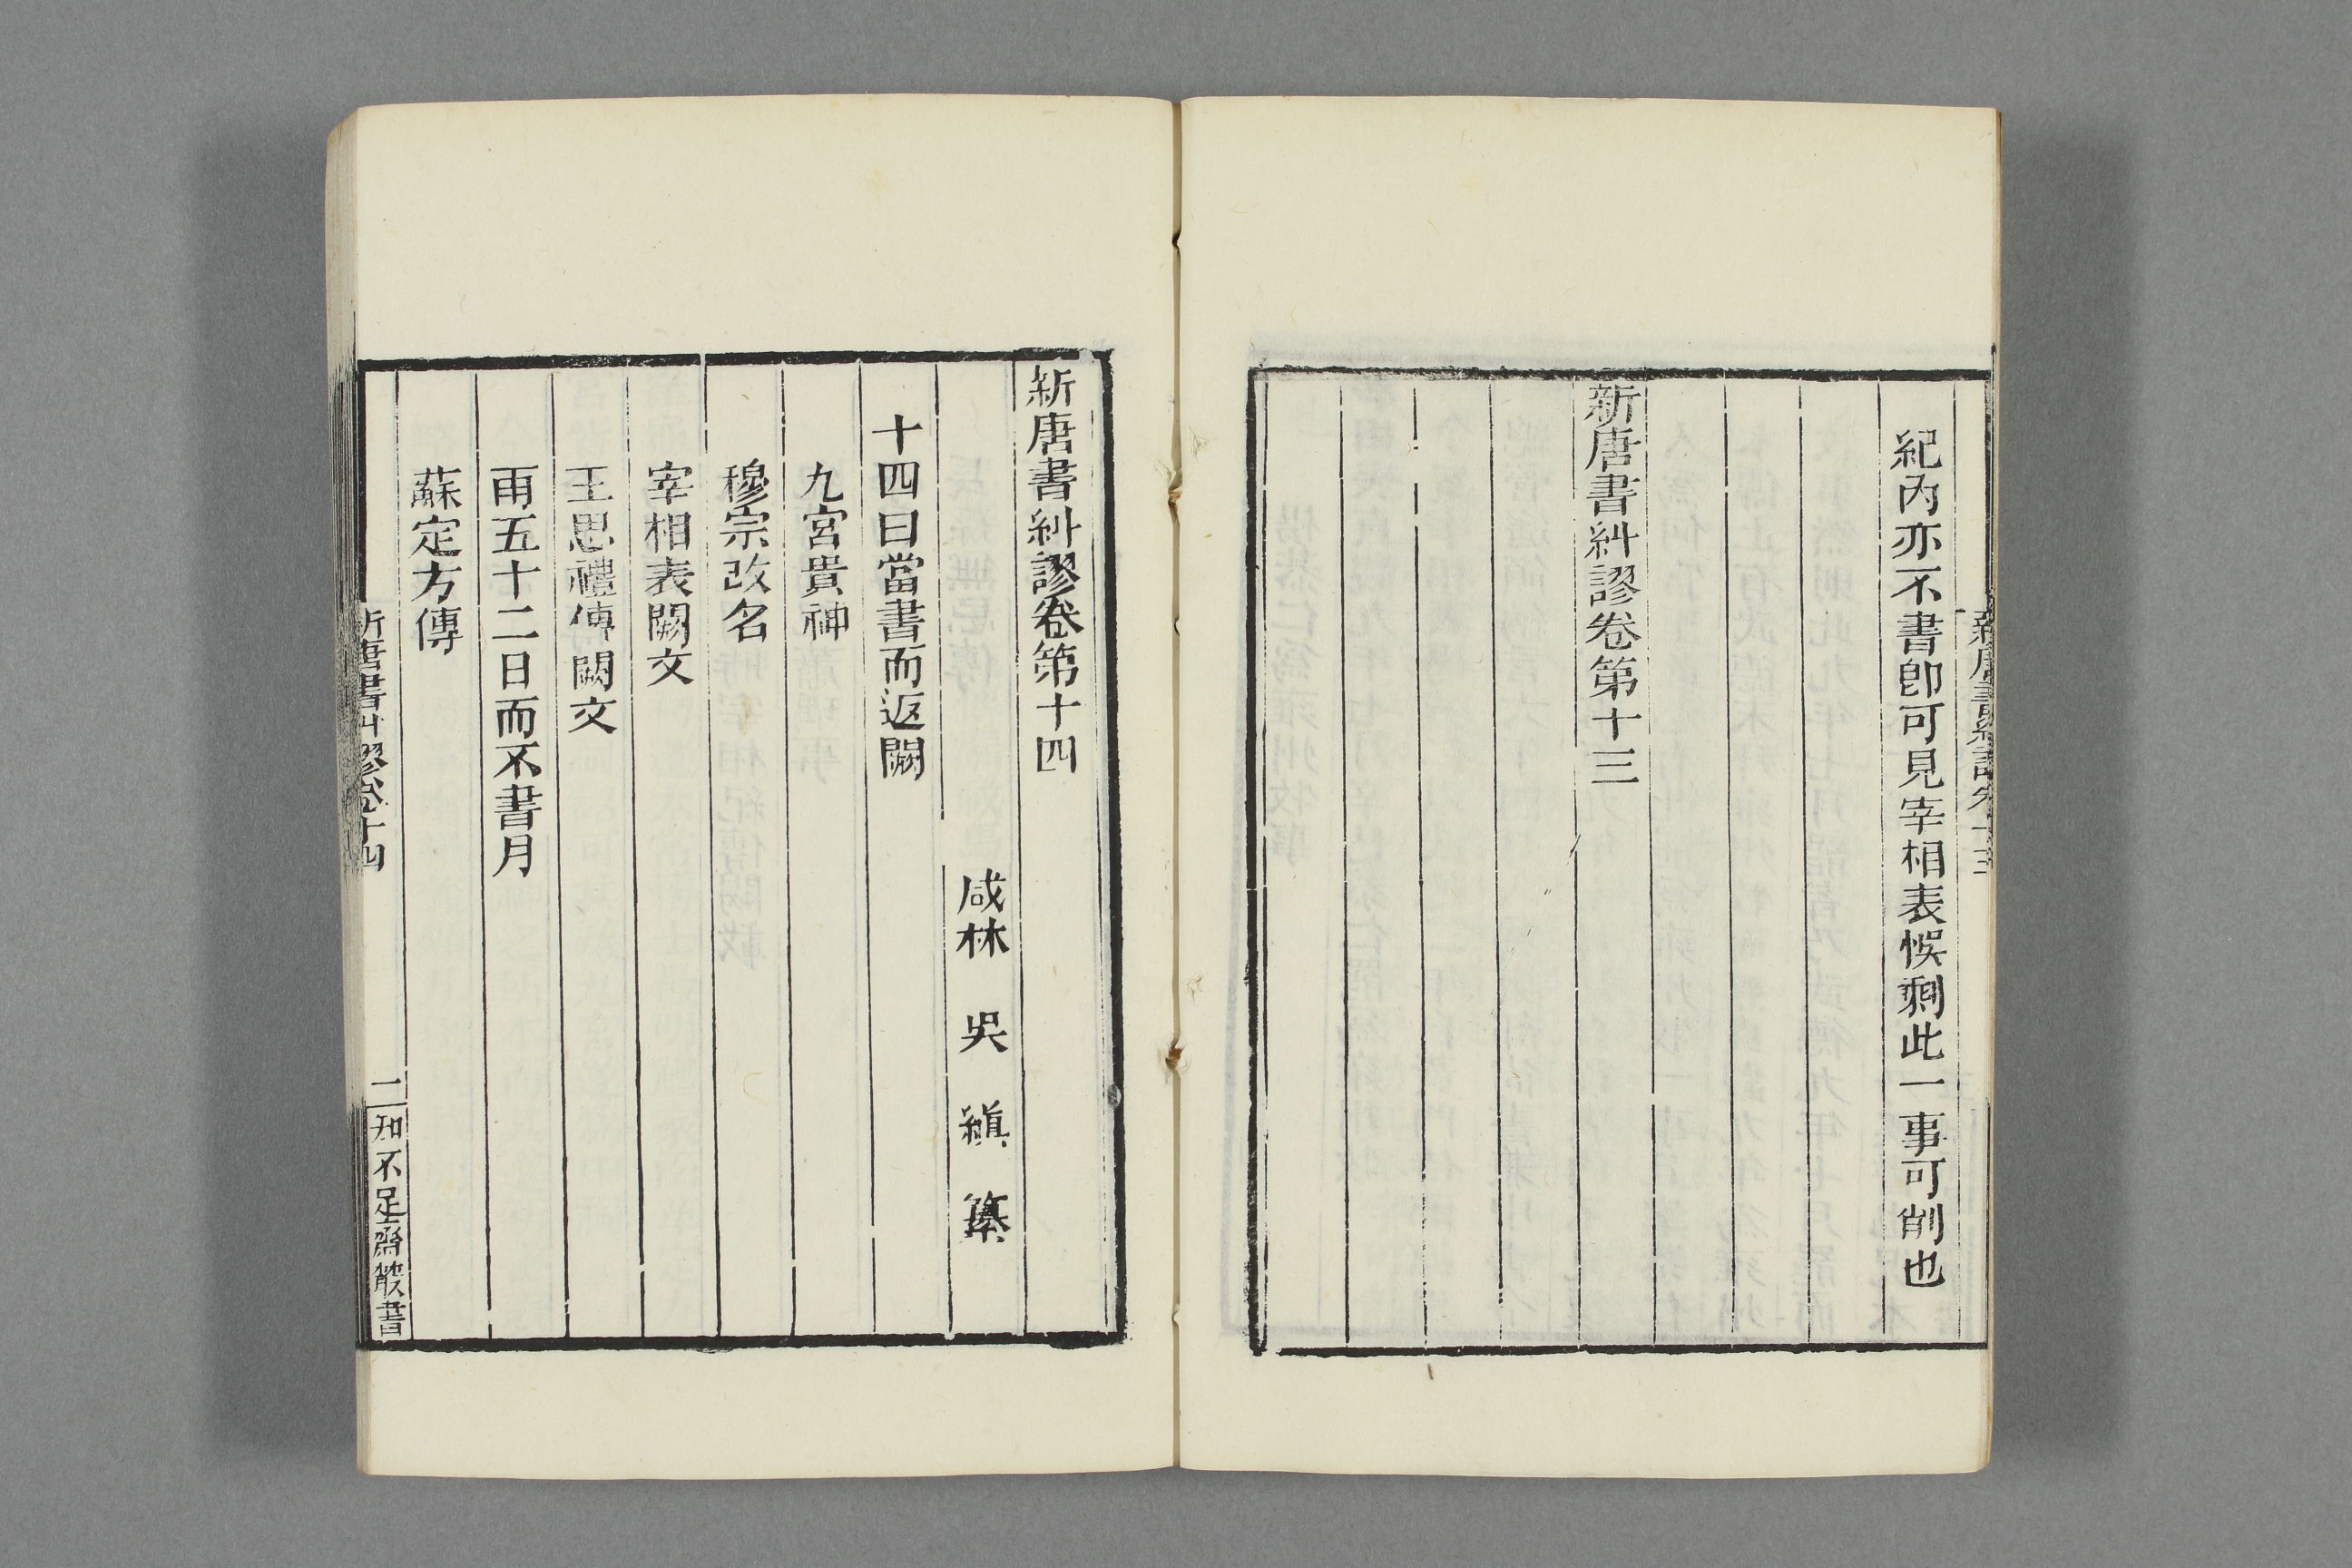 紀內亦不書卽可見宰相表悞剩此一事可削也
新唐書糾謬卷第十三
新唐書糾謬卷十三
新唐書糾謬卷第十四
咸林 吳 縝 纂
十四曰當書而返闕
九宮貴神
穆宗改名
宰相表闕文
王思禮傳闕文
雨五十二日而不書月
蘇定方傳
新唐書糾謬卷十四
一
知不足齋叢書